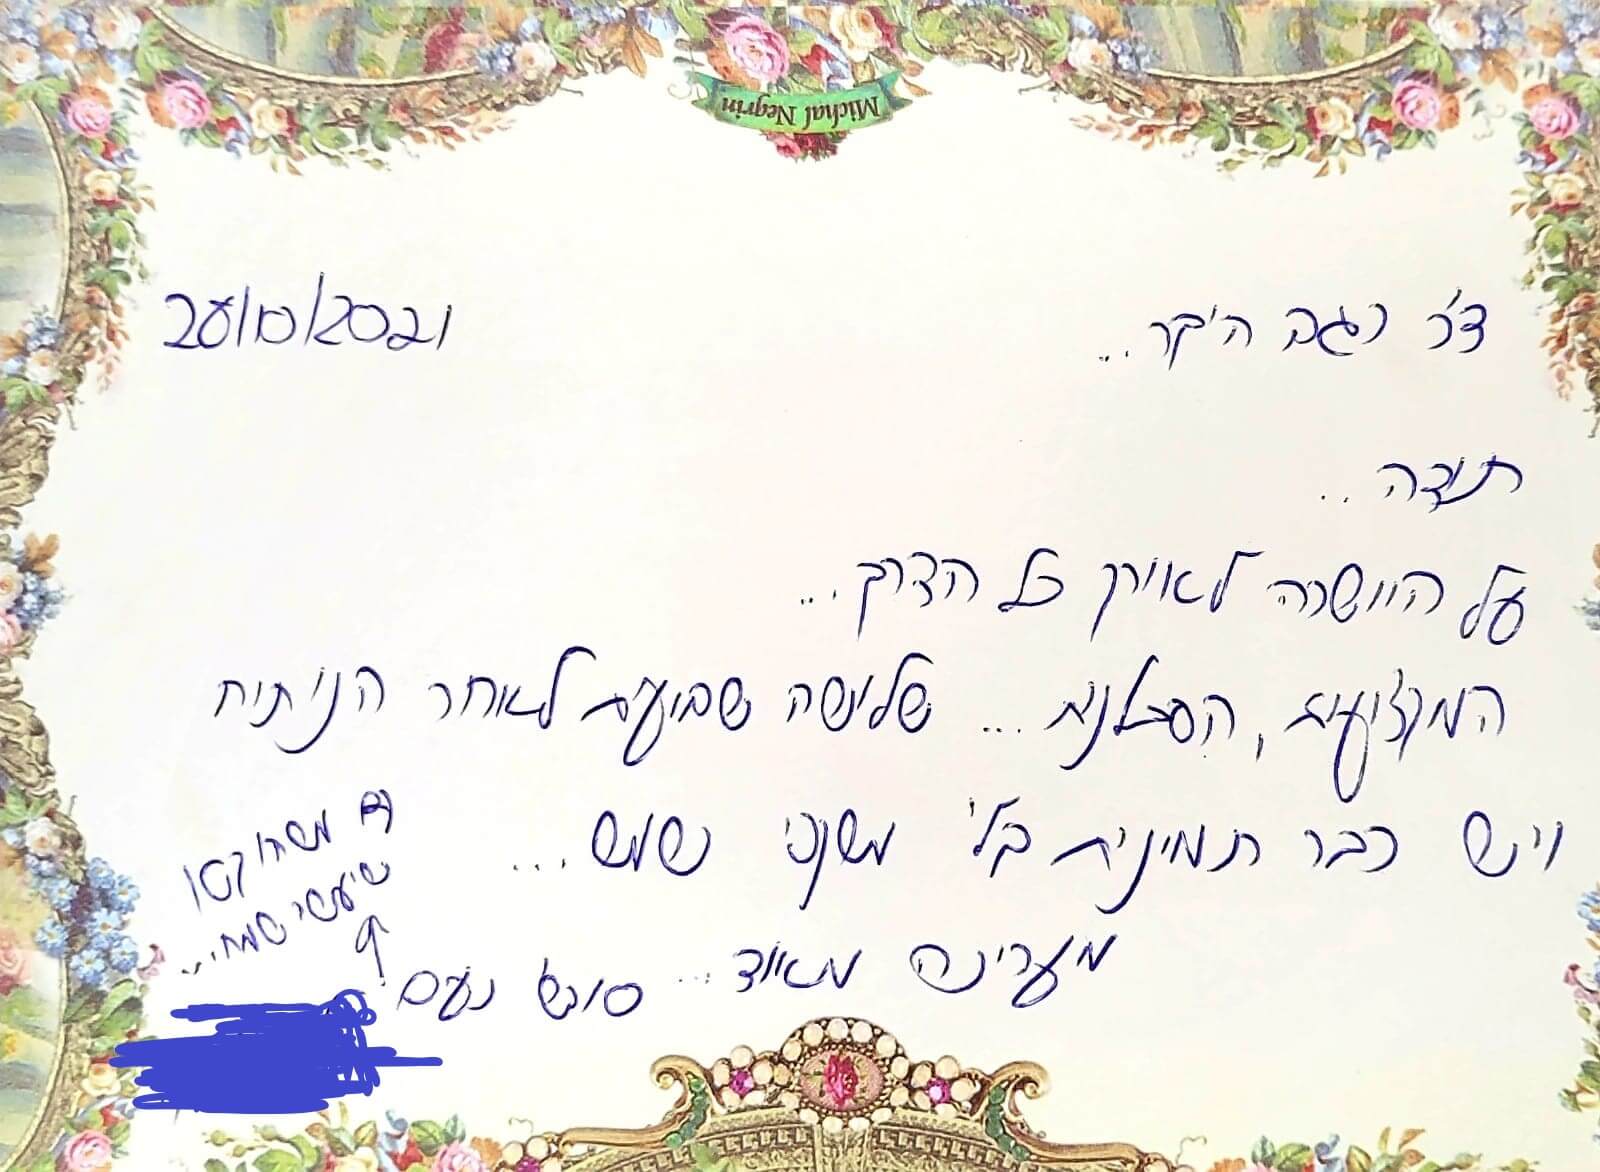 Michal Negrin
28/10/2021
ד"ר נגב היקר...
תודה..
על היושרה לאורך כל הדרך...
המקצועיות, הסבלנות... שלושה שבועות לאחר הניתוח
ויש כבר תמונות בלי משקפי שמש...
מעריכה מאוד... סופ"ש נעים
גם משהו קטן
שיעשי שמח...